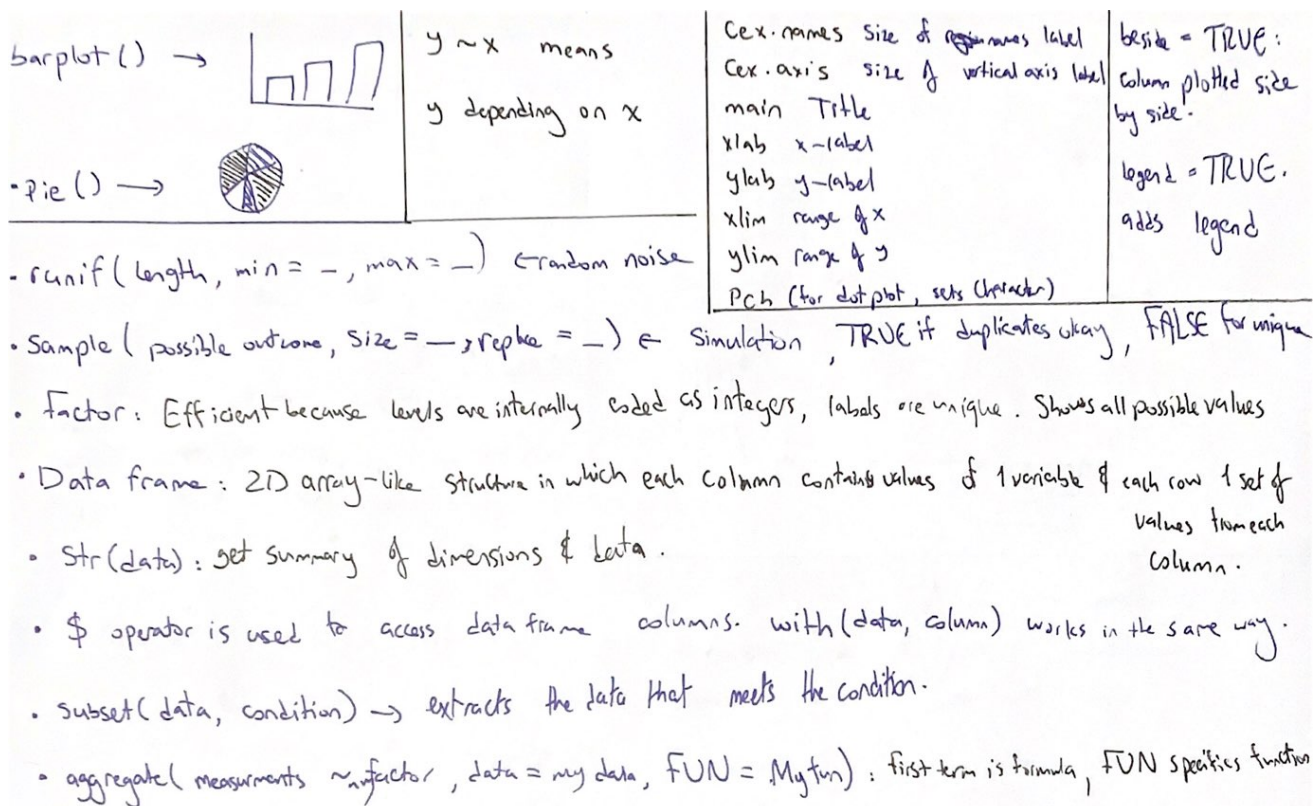 barplot () →
• Pie () →
y ~ x means
y depending on x
Cex.names size of names label
Cex.axis size of vertical axis label
main Title
xlab x-label
ylab y-label
xlim range of x
ylim range of y
Pch (for dot plot, sets Character)
beside = TRUE:
column plotted side
by side.
legend = TRUE.
adds legend
• runif ( length, min = _ , max = _ ) ← random noise
• Sample ( possible outcome, Size = _ , replace = _ ) ← Simulation , TRUE if duplicates okay , FALSE for unique
• factor : Efficient because levels are internally coded as integers, labels are unique. Shows all possible values
• Data frame : 2D array-like structure in which each Column contains values of 1 variable & each row 1 set of
values from each
column.
• Str (data) : get summary of dimensions & data.
• $ operator is used to access data frame columns. with (data, column) works in the same way.
• subset ( data, condition) → extracts the data that meets the condition.
• aggregate ( measurments ~ factor , data = my data, FUN = My fun) : first term is formula, FUN specifies function